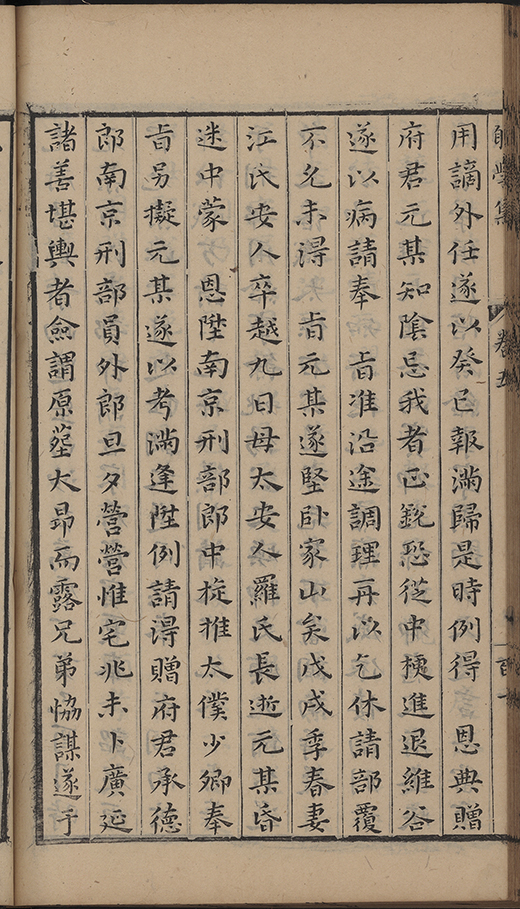 學集 卷五
用謫外任遂以癸巳報滿歸是時例得 恩典贈
府君元某知陰忌我者正銳恐從中梗進退維谷
遂以病請奉 旨准沿途調理再以乞休請部覆
不允未得 旨元某遂堅卧家山矣戊戌季春妻
江氏安人卒越九日母太安人羅氏長逝元某昏
迷中蒙 恩陞南京刑部郎中旋推太僕少卿奉
旨另擬元某遂以考滿逢陞例請得贈府君承德
郎南京刑部員外郎旦夕營營惟宅兆未卜廣延
諸善堪輿者僉謂原塟大昻而露兄弟恊謀遂于